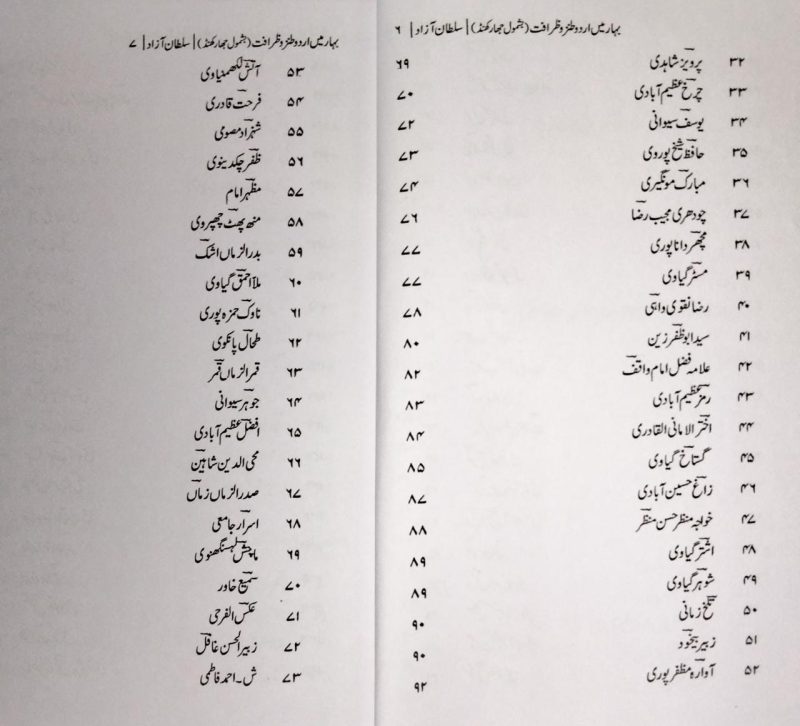 بہار میں اردو طنز و ظرافت (بشمول جھارکھنڈ) | سلطان آزاد | ۶
۳۲ پرویز شاہدی ۶۹
۳۳ چرخ عظیم آبادی ۷۰
۳۴ یوسف سیوانی ۷۲
۳۵ حافظ شیخ پوروی ۷۳
۳۶ مبارک مونگیری ۷۴
۳۷ چودھری مجیب رضا ۷۶
۳۸ مچھر داناپوری ۷۷
۳۹ مسٹر گیاوی ۷۷
۴۰ رضا نقوی واہی ۷۸
۴۱ سید ابوظفر زین ۸۰
۴۲ علامہ فضل امام واقف ۸۲
۴۳ رمز عظیم آبادی ۸۳
۴۴ اختر الامانی القادری ۸۴
۴۵ گستاخ گیاوی ۸۵
۴۶ زاغ حسین آبادی ۸۷
۴۷ خواجہ منظر حسن منظر ۸۸
۴۸ اشتر گیاوی ۸۹
۴۹ شوہر گیاوی ۸۹
۵۰ تلخ زمانی ۹۰
۵۱ زبیر بیخود ۹۰
۵۲ آوارہ مظفرپوری ۹۲
بہار میں اردو طنز و ظرافت (بشمول جھارکھنڈ) | سلطان آزاد | ۷
۵۳ آتش لکھمنیاوی
۵۴ فرحت قادری
۵۵ شہزاد معصومی
۵۶ ظفر چکدینوی
۵۷ مظہر امام
۵۸ منھ پھٹ چھپروی
۵۹ بدرالزماں اشک
۶۰ ملا احمق گیاوی
۶۱ ناوک حمزہ پوری
۶۲ طحال پانکوی
۶۳ قمرالزماں قمر
۶۴ جوہر سیوانی
۶۵ افضل عظیم آبادی
۶۶ محی الدین شاہین
۶۷ صدرالزماں زماں
۶۸ اسرار جامعی
۶۹ ماچس لہسنگھنوی
۷۰ سمیع خاور
۷۱ عکس الفرحی
۷۲ زبیر الحسن غافل
۷۳ ش۔ احمد فاطمی